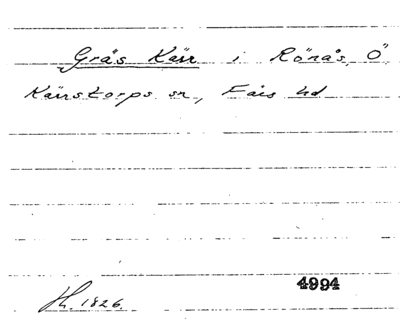 Grås Kärr i Rönås, Ö
Kärrstorps sn, Fårs hd
4994
H. 1826.